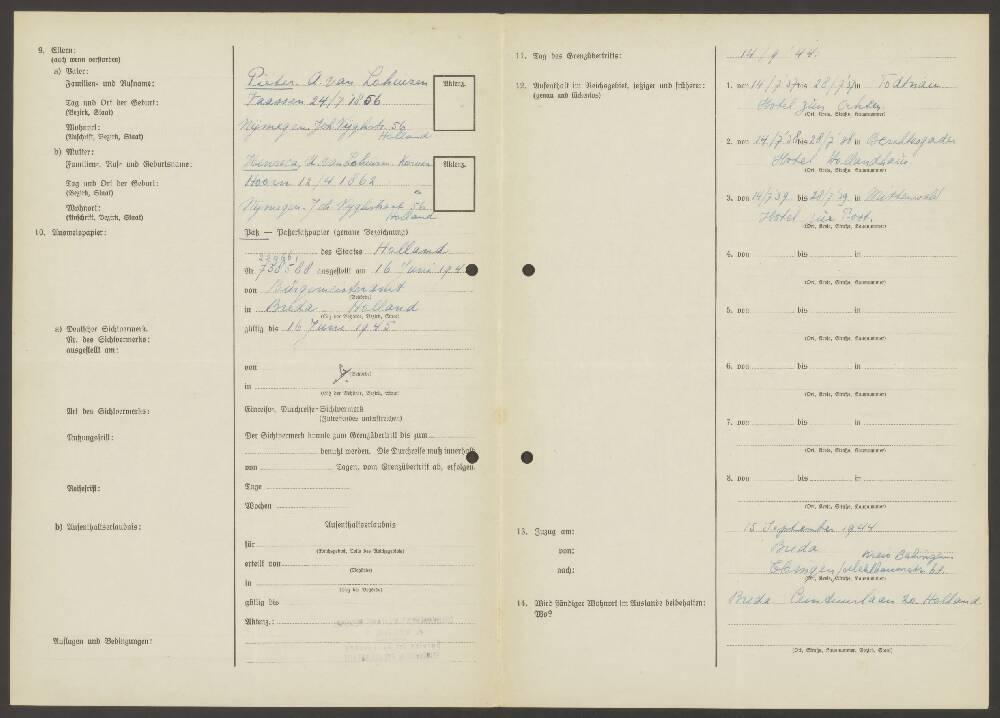 9. Eltern:
(auch wenn verstorben)
a) Vater:
Familien- und Rufname:
Pieter A. van Lohuizen
Aktenz.
Tag und Ort der Geburt:
(Bezirk, Staat)
Vaassen 24/7 1856
Wohnort:
(Anschrift, Bezirk, Staat)
Nijmegen Joh. Vijghstr. 56
Holland
b) Mutter:
Familien-, Ruf- und Geburtsname:
van Lohuizen
Aktenz.
Tag und Ort der Geburt:
(Bezirk, Staat)
Hoorn 12/4 1862
Wohnort:
(Anschrift, Bezirk, Staat)
Nijmegen. Joh. Vijghstraat 56
Holland
10. Ausweispapier:
Paß — Paßersatzpapier (genaue Bezeichnung)
des Staates Holland
Nr. 738588 ausgestellt am 16 Juni 194
von Bürgermeisteramt
(Behörde)
in Breda Holland
(Sitz der Behörde, Bezirk, Staat)
gültig bis 16 Juni 1945.
a) Deutscher Sichtvermerk.
Nr. des Sichtvermerks:
ausgestellt am:
von
(Behörde)
in
(Sitz der Behörde, Bezirk, Staat)
Art des Sichtvermerks:
Einreise-, Durchreise-Sichtvermerk
(Zutreffendes unterstreichen)
Nutzungsfrist:
Der Sichtvermerk konnte zum Grenzübertritt bis zum
benutzt werden. Die Durchreise muß innerhalb
von Tagen, vom Grenzübertritt ab, erfolgen.
Reisefrist:
Tage
Wochen
b) Aufenthaltserlaubnis:
Aufenthaltserlaubnis
für
(Reichsgebiet, Teile des Reichsgebiets)
erteilt von
(Behörde)
in
(Sitz der Behörde)
gültig bis
Aktenz.:
Auflagen und Bedingungen:
11. Tag des Grenzübertritts:
14/9 '44.
12. Aufenthalt im Reichsgebiet, jetziger und früherer:
(genau und lückenlos)
1. von 14/7 '37 bis 28/7 '37 in Todtnau
Hotel zum Ochsen
(Ort, Kreis, Straße, Hausnummer)
2. von 14/7 '38 bis 28/7 '38 in Berchtesgaden
Hotel
(Ort, Kreis, Straße, Hausnummer)
3. von 14/7 '39. bis 28/7 '39. in Mittenwald
Hotel zur Post.
(Ort, Kreis, Straße, Hausnummer)
4. von bis in
(Ort, Kreis, Straße, Hausnummer)
5. von bis in
(Ort, Kreis, Straße, Hausnummer)
6. von bis in
(Ort, Kreis, Straße, Hausnummer)
7. von bis in
(Ort, Kreis, Straße, Hausnummer)
8. von bis in
(Ort, Kreis, Straße, Hausnummer)
13. Zuzug am:
15 September 1944
von:
Breda
nach:
Kreis Balingen
Ebingen
(Ort, Kreis, Straße, Hausnummer)
14. Wird ständiger Wohnort im Auslande beibehalten:
Wo?
Breda Holland.
(Ort, Straße, Hausnummer, Bezirk, Staat)